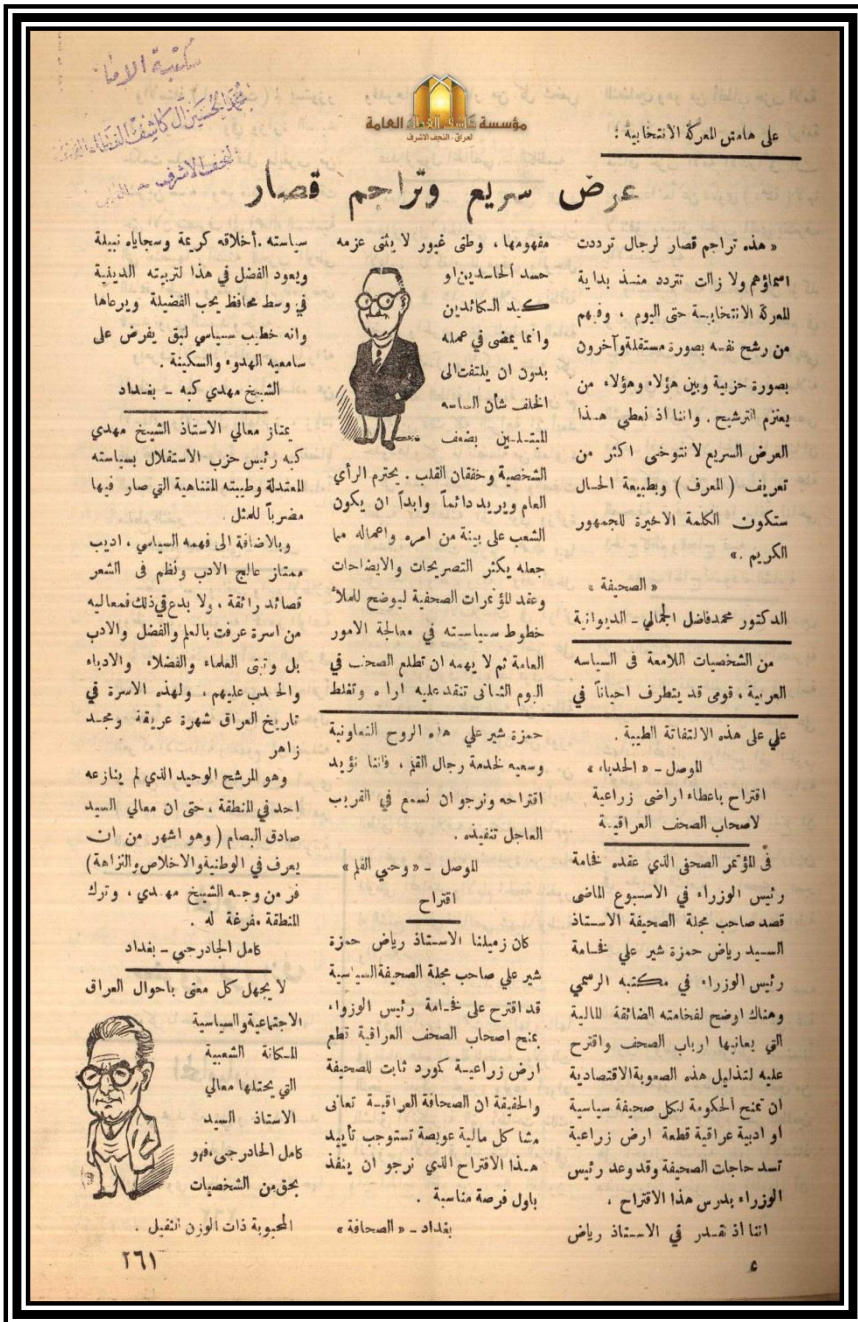 مكتبة الامام
محمد الحسين آل كاشف الغطاء العامة
النجف الاشرف
مؤسسة كاشف الغطاء العامة
العراق - النجف الاشرف
على هامش المعركة الانتخابية :
عرض سريع وتراجم قصار
« هذه تراجم قصار لرجال ترددت
اسماؤهم ولا زالت تتردد منذ بداية
المعركة الانتخابية حتى اليوم ، وفيهم
من رشح نفسه بصورة مستقلة وآخرون
بصورة حزبية وبين هؤلاء وهؤلاء من
يعتزم الترشيح . واننا اذ نعطي هذا
العرض السريع لا نتوخى اكثر من
تعريف ( المعرف ) وبطبيعة الحال
ستكون الكلمة الاخيرة للجمهور
الكريم .»
« الصحيفة »
الدكتور محمد فاضل الجمالي - الديوانية
من الشخصيات اللامعة فى السياسه
العربية ، قومى قد يتطرف احياناً في
مفهومها ، وطنى غيور لا يثنى عزمه
حسد الحاسدين او
كيد الكائدين
وانما يمضى في عمله
بدون ان يلتفت الى
الخلف شأن الساسه
المبتلين بضعف
الشخصية وخفقان القلب . يحترم الرأي
العام ويريد دائماً وابداً ان يكون
الشعب على بينة من امره واعماله مما
جعله يكثر التصريحات والايضاحات
وعقد المؤتمرات الصحفية ليوضح للملأ
خطوط سياسته في معالجة الامور
العامة ثم لا يهمه ان تطلع الصحف في
اليوم الثانى تنتقد عليه اراءه وتغلط
سياسته . أخلاقه كريمة وسجاياه نبيلة
ويعود الفضل في هذا لتربيته الدينية
في وسط محافظ يحب الفضيلة ويرعاها
وانه خطيب سياسي لبق يفرض على
سامعيه الهدوء والسكينة .
الشيخ مهدي كبه - بغداد
يمتاز معالي الاستاذ الشيخ مهدي
كبه رئيس حزب الاستقلال بسياسته
المعتدلة وطيبته المتناهية التي صار فيها
مضرباً للمثل .
وبالاضافة الى فهمه السياسي ، اديب
ممتاز عالج الادب ونظم فى الشعر
قصائد رائقة ، ولا بدع في ذلك فمعاليه
من اسرة عرفت بالعلم والفضل والادب
بل وتبنى العلماء والفضلاء والادباء
والحدب عليهم ، ولهذه الاسرة في
تاريخ العراق شهرة عريقة ومجد
زاهر
وهو المرشح الوحيد الذي لم ينازعه
احد في المنطقة ، حتى ان معالي السيد
صادق البصام ( وهو اشهر من ان
يعرف في الوطنية والاخلاص والنزاهة )
فر من وجه الشيخ مهدي ، وترك
المنطقة مفرغة له .
كامل الجادرجي - بغداد
لا يجهل كل معنى باحوال العراق
الاجتماعية والسياسية
المكانة الشعبية
التي يحتلها معالي
الاستاذ السيد
كامل الجادرجى ، فهو
بحق من الشخصيات
المحبوبة ذات الوزن الثقيل .
علي على هذه الالتفاتة الطيبة .
الموصل - « الحدباء »
اقتراح باعطاء اراضى زراعية
لاصحاب الصحف العراقية
فى المؤتمر الصحفي الذي عقده فخامة
رئيس الوزراء في الاسبوع الماضى
قصد صاحب مجلة الصحيفة الاستاذ
السيد رياض حمزة شير علي فخامة
رئيس الوزراء في مكتبه الرسمي
وهناك اوضح لفخامته الضائقة المالية
التي يعانيها ارباب الصحف واقترح
عليه لتذليل هذه الصعوبة الاقتصادية
ان تمنح الحكومة لكل صحيفة سياسية
او ادبية عراقية قطعة ارض زراعية
تسد حاجات الصحيفة وقد وعد رئيس
الوزراء بدرس هذا الاقتراح ،
اننا اذ نقدر في الاستاذ رياض
حمزة شير علي هذه الروح التعاونية
وسعيه لخدمة رجال القلم ، فاننا نؤيد
اقتراحه ونرجو ان نسمع في القريب
العاجل تنفيذه .
الموصل - « وحي القلم »
اقتراح
كان زميلنا الاستاذ رياض حمزة
شير علي صاحب مجلة الصحيفة السياسية
قد اقترح على فخامة رئيس الوزراء
بمنح اصحاب الصحف العراقية قطع
ارض زراعية كمورد ثابت للصحيفة
والحقيقة ان الصحافة العراقية تعانى
مشاكل مالية عويصة تستوجب تأييد
هذا الاقتراح الذي نرجو ان ينفذ
باول فرصة مناسبة .
بغداد - « الصحافة »
٤
٢٦١